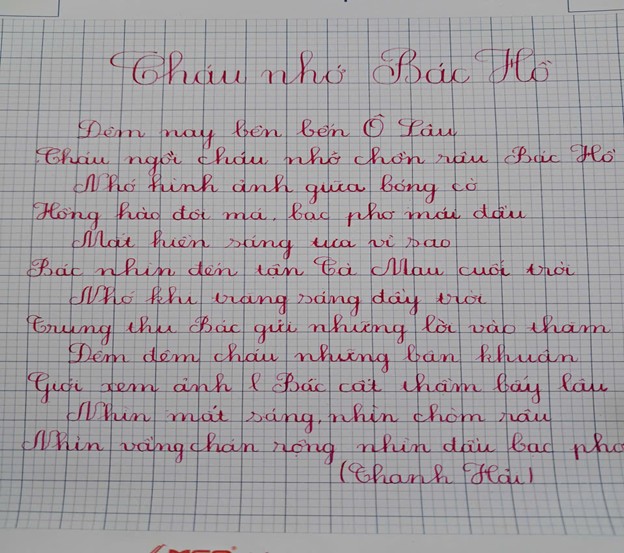 Cháu nhớ Bác Hồ
Đêm nay bên bến Ô Lâu
Cháu ngồi cháu nhớ chòm râu Bác Hồ
Nhớ hình ảnh giữa bóng cờ
Hồng hào đôi má, bạc phơ mái đầu
Mắt hiền sáng tựa vì sao
Bác nhìn đến tận Cà Mau cuối trời
Nhớ khi trăng sáng đầy trời
Trung thu Bác gửi những lời vào thăm
Đêm đêm cháu những bâng khuâng
Giở xem ảnh Bác cất thầm bấy lâu
Nhìn mắt sáng, nhìn chòm râu
Nhìn vầng trán rộng nhìn đầu bạc phơ
(Thanh Hải)